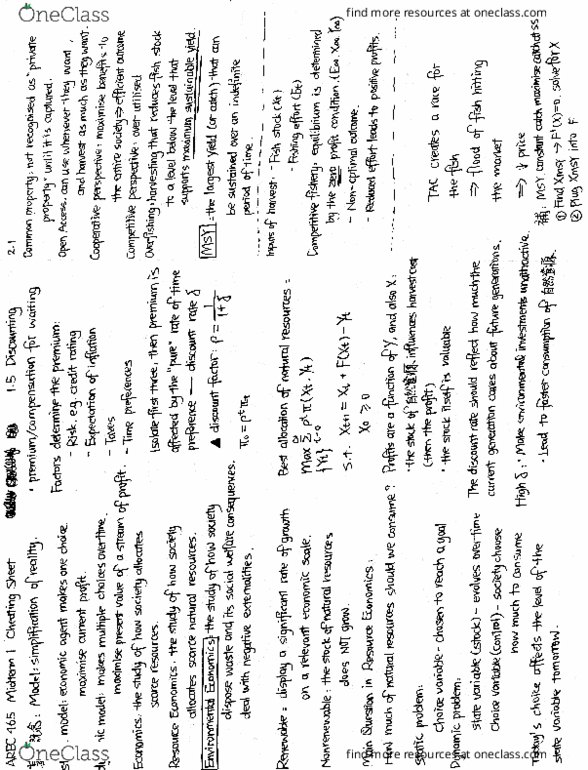 OneClass
find more resources at oneclass.com
AREC 465 Midterm 1 Cheating Sheet
Model: simplification of reality.
model: economic agent makes one choice.
maximise current profit.
model: makes multiple choices overtime.
maximise present value of a stream of profit.
Economics: the study of how society allocates
scarce resources.
Resource Economics: the study of how society
allocates scarce natural resources.
Environmental Economics: the study of how society
dispose waste and its social welfare consequences.
deal with negative externalities.
Renewable: display a significant rate of growth
on a relevant economic scale.
Nonrenewable: the stock of natural resources
does NOT grow.
Main Question in Resource Economics:
How much of natural resources should we consume?
static problem:
choice variable - chosen to reach a goal
Dynamic problem:
state variable (stock) - evolves overtime
choice variable (control) - society choose
how much to consume
today's choice affects the level of the
state variable tomorrow.
1.5 Discounting
• premium/compensation for waiting
Factors determine the premium:
- Risk. e.g. credit rating
- Expectation of inflation
- Taxes
- Time preferences
Isolate first three, then premium is
affected by the "pure" rate of time
preference — discount rate δ
▲ discount factor: ρ = 1/(1+δ)
π₀ = ρᵗπₜ
Best allocation of natural resources:
max Σ ρᵗ π(Xₜ, Yₜ)
{Yₜ} t=0
s.t. Xₜ₊₁ = Xₜ + F(Xₜ) - Yₜ
X₀ ≥ 0
Profits are a function of Y, and also X:
• the stock of 自然资源 influences harvest cost
(then the profit)
• the stock itself is valuable
The discount rate should reflect how much the
current generation cares about future generations.
High δ: • Make environmental investments unattractive.
• Lead to faster consumption of 自然资源.
2.1
Common property: not recognised as "private
property" until it is captured.
Open Access: can use whenever they want,
and harvest as much as they want.
Cooperative perspective: maximise benefits to
the entire society ⇒ efficient outcome
Competitive perspective: over utilised
Overfishing: harvesting that reduces fish stock
to a level below the level that
supports maximum sustainable yield.
MSY: the largest yield (or catch) that can
be sustained over an indefinite
period of time.
Inputs of harvest: - Fish stock (Xₜ)
- Fishing effort (Eₜ)
Competitive fishery: equilibrium is determined
by the zero profit condition. (E∞, X∞, Y∞)
- Non-optimal outcome.
- Reduced effort leads to positive profits.
TAC creates a race for
the fish
⇒ flood of fish hitting
the market
⇒ ↓ price
MSY constant catch maximise catch at ss
① Find Xmsy → F'(X)=0, solve for X
② Plug Xmsy into F
OneClass
find more resources at oneclass.com